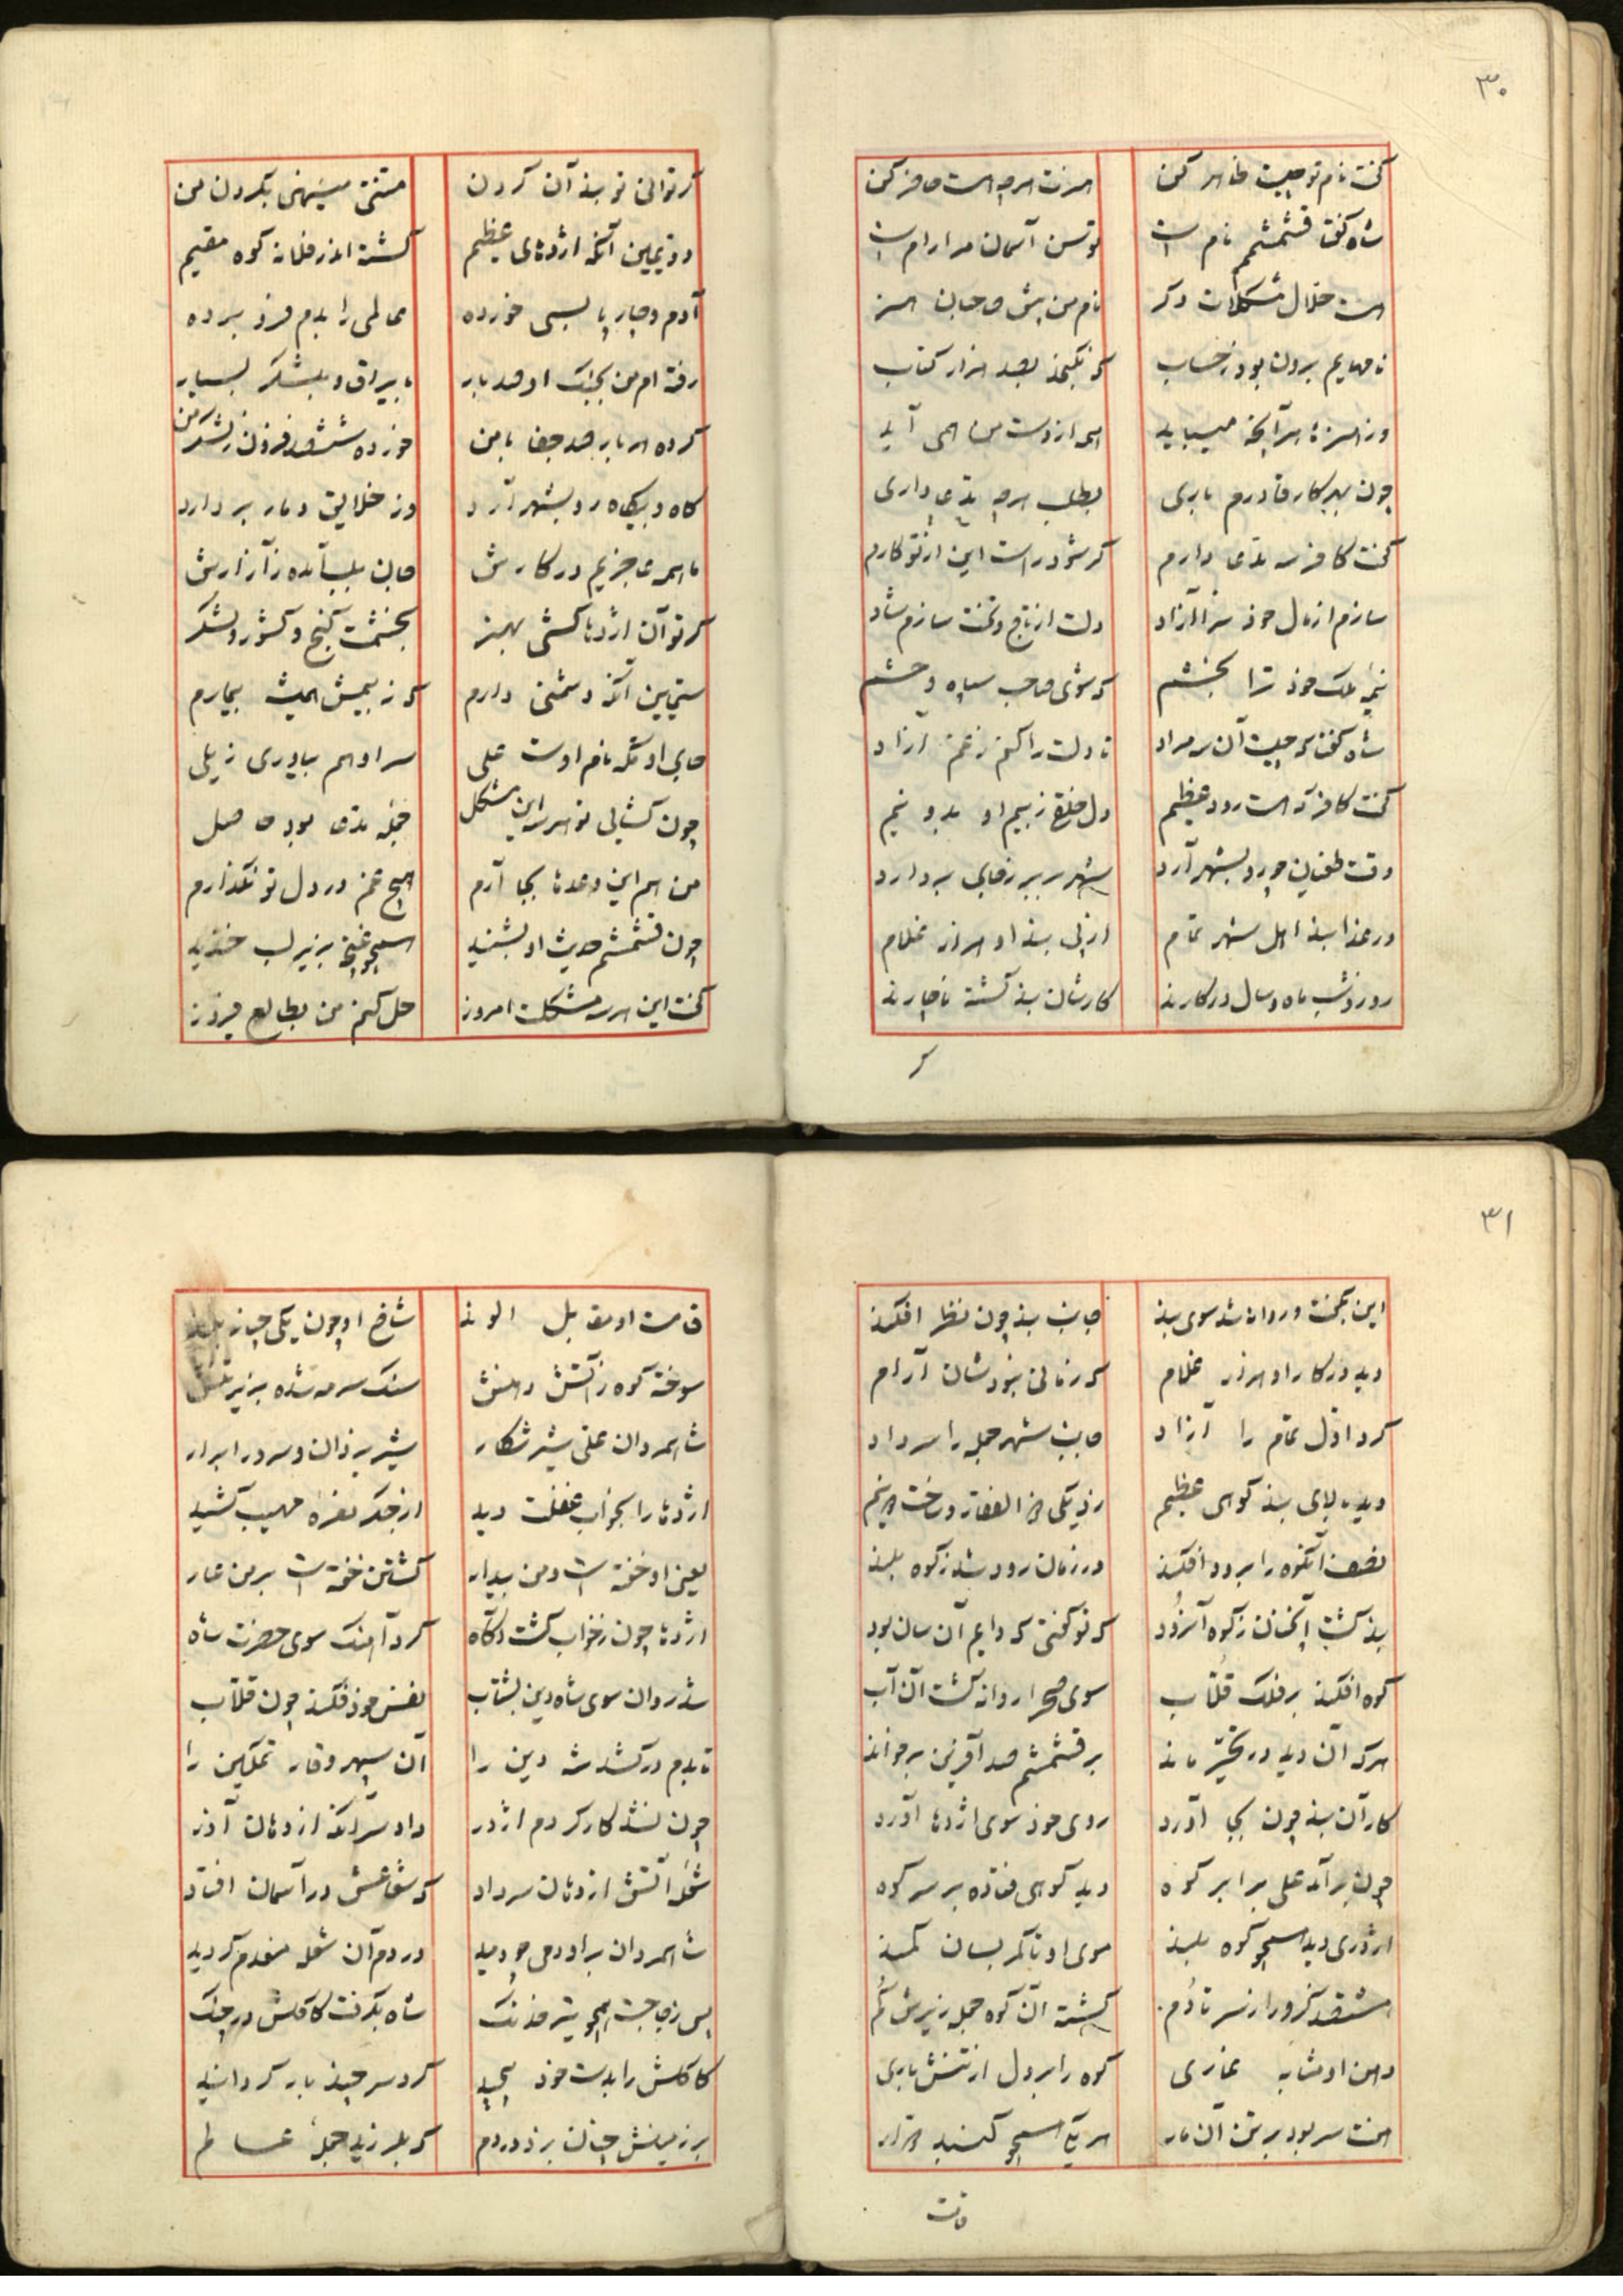 ۳۰
گفت نام تو چیست ظاهر کن هنرت هرچه هست حاضر کن
شاه گفتا قشمشم نام است توسن آسمان مرا رام است
هست حلال مشکلات دگر نام من پیش صاحبان هنر
نامهایم برون بود ز حساب که نگنجد بصد هزار کتاب
وز هنرها هر آنچه میباید همه از دست من همی آید
چون بهر کار قادرم باری بطلب هرچه مدعی داری
گفت کافر سه مدعی دارم گر شود راست این از تو کارم
سازم از مال خود ترا آزاد دلت از تاج و تخت سازم شاد
نیمه ملک خود ترا بخشم که شوی صاحب سپاه و حشم
شاه گفتا که چیست آن سه مراد تا دلت را کنم ز غم آزاد
گفت کافر که هست رود عظیم دل خلق ز بیم او بدو نیم
وقت طغیان چو رو بشهر آرد شهر سربسر ز جای بردارد
در غذا بند اهل شهر تمام از پی بند او هزار غلام
روز و شب ماه و سال در کارند کارشان بند گشته ناچارند
گر
گر توانی تو بند آن کردن منتی مینهی بگردن من
دویمین آنکه اژدهای عظیم گشته اندر فلان کوه مقیم
آدم و چارپا بسی خورده عالمی را بدم فرو برده
رفته ام من بجنگ او صد بار با یراق و بلشکر بسیار
کرده هر بار صد جفا با من خورده ششصد فزون ز لشکر من
گاه و بیگاه رو بشهر آرد وز خلایق دمار بردارد
ما همه عاجزیم در کارش جان بلب آمده ز آزارش
گر تو آن اژدها کشی بهنر بخشمت گنج و کشور و لشکر
سیمین آنکه دشمنی دارم که ز بیمش همیشه بیمارم
جای او مکه نام اوست علی سر او هم بیاوری ز یلی
چون گشایی تو هر سه این مشکل جمله مدعا بود حاصل
من هم این وعدها بجا آرم هیچ غم در دل تو نگذارم
چون قشمشم حدیث او بشنید همچو غنچه بزیر لب خندید
گفت این هر سه مشکلت امروز حل کنم من بطالع فیروز
۳۱
این بگفت و روان شد سوی بند جانب بند چون نظر افکند
دید در کار او هزار غلام که زمانی نبودشان آرام
کرد اول تمام را آزاد جانب شهر جمله را سر داد
دید بالای بند کوهی عظیم زد یکی ذوالفقار و ساخت دو نیم
نصف آنکوه را برود افکند در زمان رود شد ز کوه بلند
بند گشت آنچنان ز کوه آنرود که تو گفتی که دایم آن سان بود
کوه افکند بر فلک قلاب سوی صحرا روانه گشت آن آب
هرکه آن دید در تحیر ماند بر قشمشم صد آفرین برخواند
کار آن بند چون بجا آورد روی خود سوی اژدها آورد
چون برآمد علی برابر کوه دید کوهی فتاده بر سر کوه
اژدری دید همچو کوه بلند موی او تا کمر بسان کمند
ششصد گز ورا ز سر تا دم گشته آن کوه جمله زیرش گم
دهن او مشابه غاری کوه را بر دل از تنش باری
هفت سر بود بر تن آن مار هر یکی همچو گنبد دوار
قامت
قامت او مقابل الوند شاخ او چون یکی چنار بلند
سوخته کوه ز آتش دهنش سنگ سرمه شده بزیر تنش
شاه مردان علی شیر شکار شیر یزدان و سرور ابرار
اژدها را بخواب غفلت دید از جگر نعره مهیب کشید
یعنی او خفته است و من بیدار کشتن خفته است بر من عار
اژدها چون ز خواب گشت آگاه کرد آهنگ سوی حضرت شاه
شد روان سوی شاه دین بشتاب نفس خود فکند چون قلاب
تا بدم درکشد شه دین را آن سپهر وقار تمکین را
چون نشد کارگر دم اژدر داد سر آنکه از دهان آذر
شعله آتش از دهان سر داد که شعاعش در آسمان افتاد
شاه مردان بر او دمی چو دمید در دم آن شعله منعدم گردید
پس ز جا جست همچو تیر خدنگ شاه بگرفت کاکلش در چنگ
کاکلش را بدست خود پیچید گرد سر چند بار گردانید
بر زمینش چنان بزد در دم که بلرزید جمله عالم